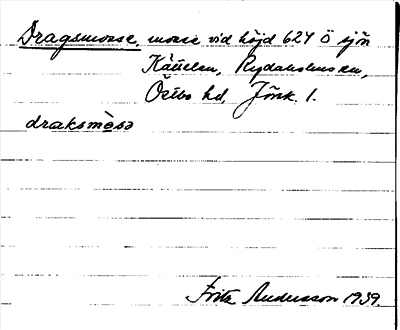 Dragsmosse, mosse vid höjd 627 Ö sjön
Kätteln, Rydaholms sn,
Östbo hd, Jönk. l.
draksmòsə
Fritz Andersson 1939.